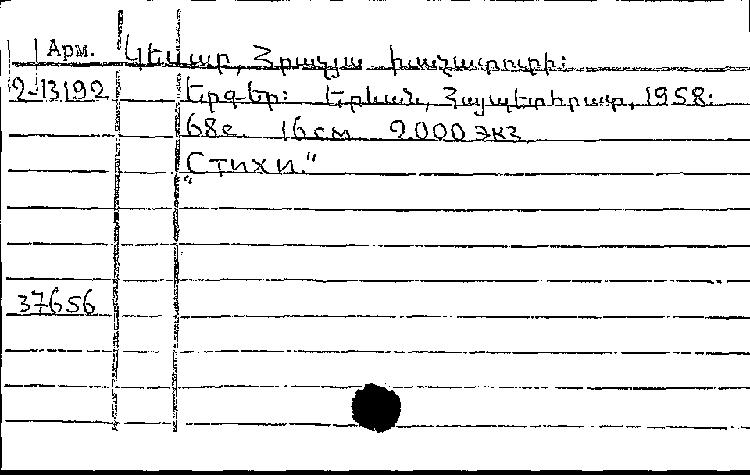 Арм.
Կեսար, Հրաչյա Խաչատուրի:
2-13192
Երգեր: Երևան, Հայպետհրատ, 1958:
68с. 16см 2.000 экз
"Стихи."
37656